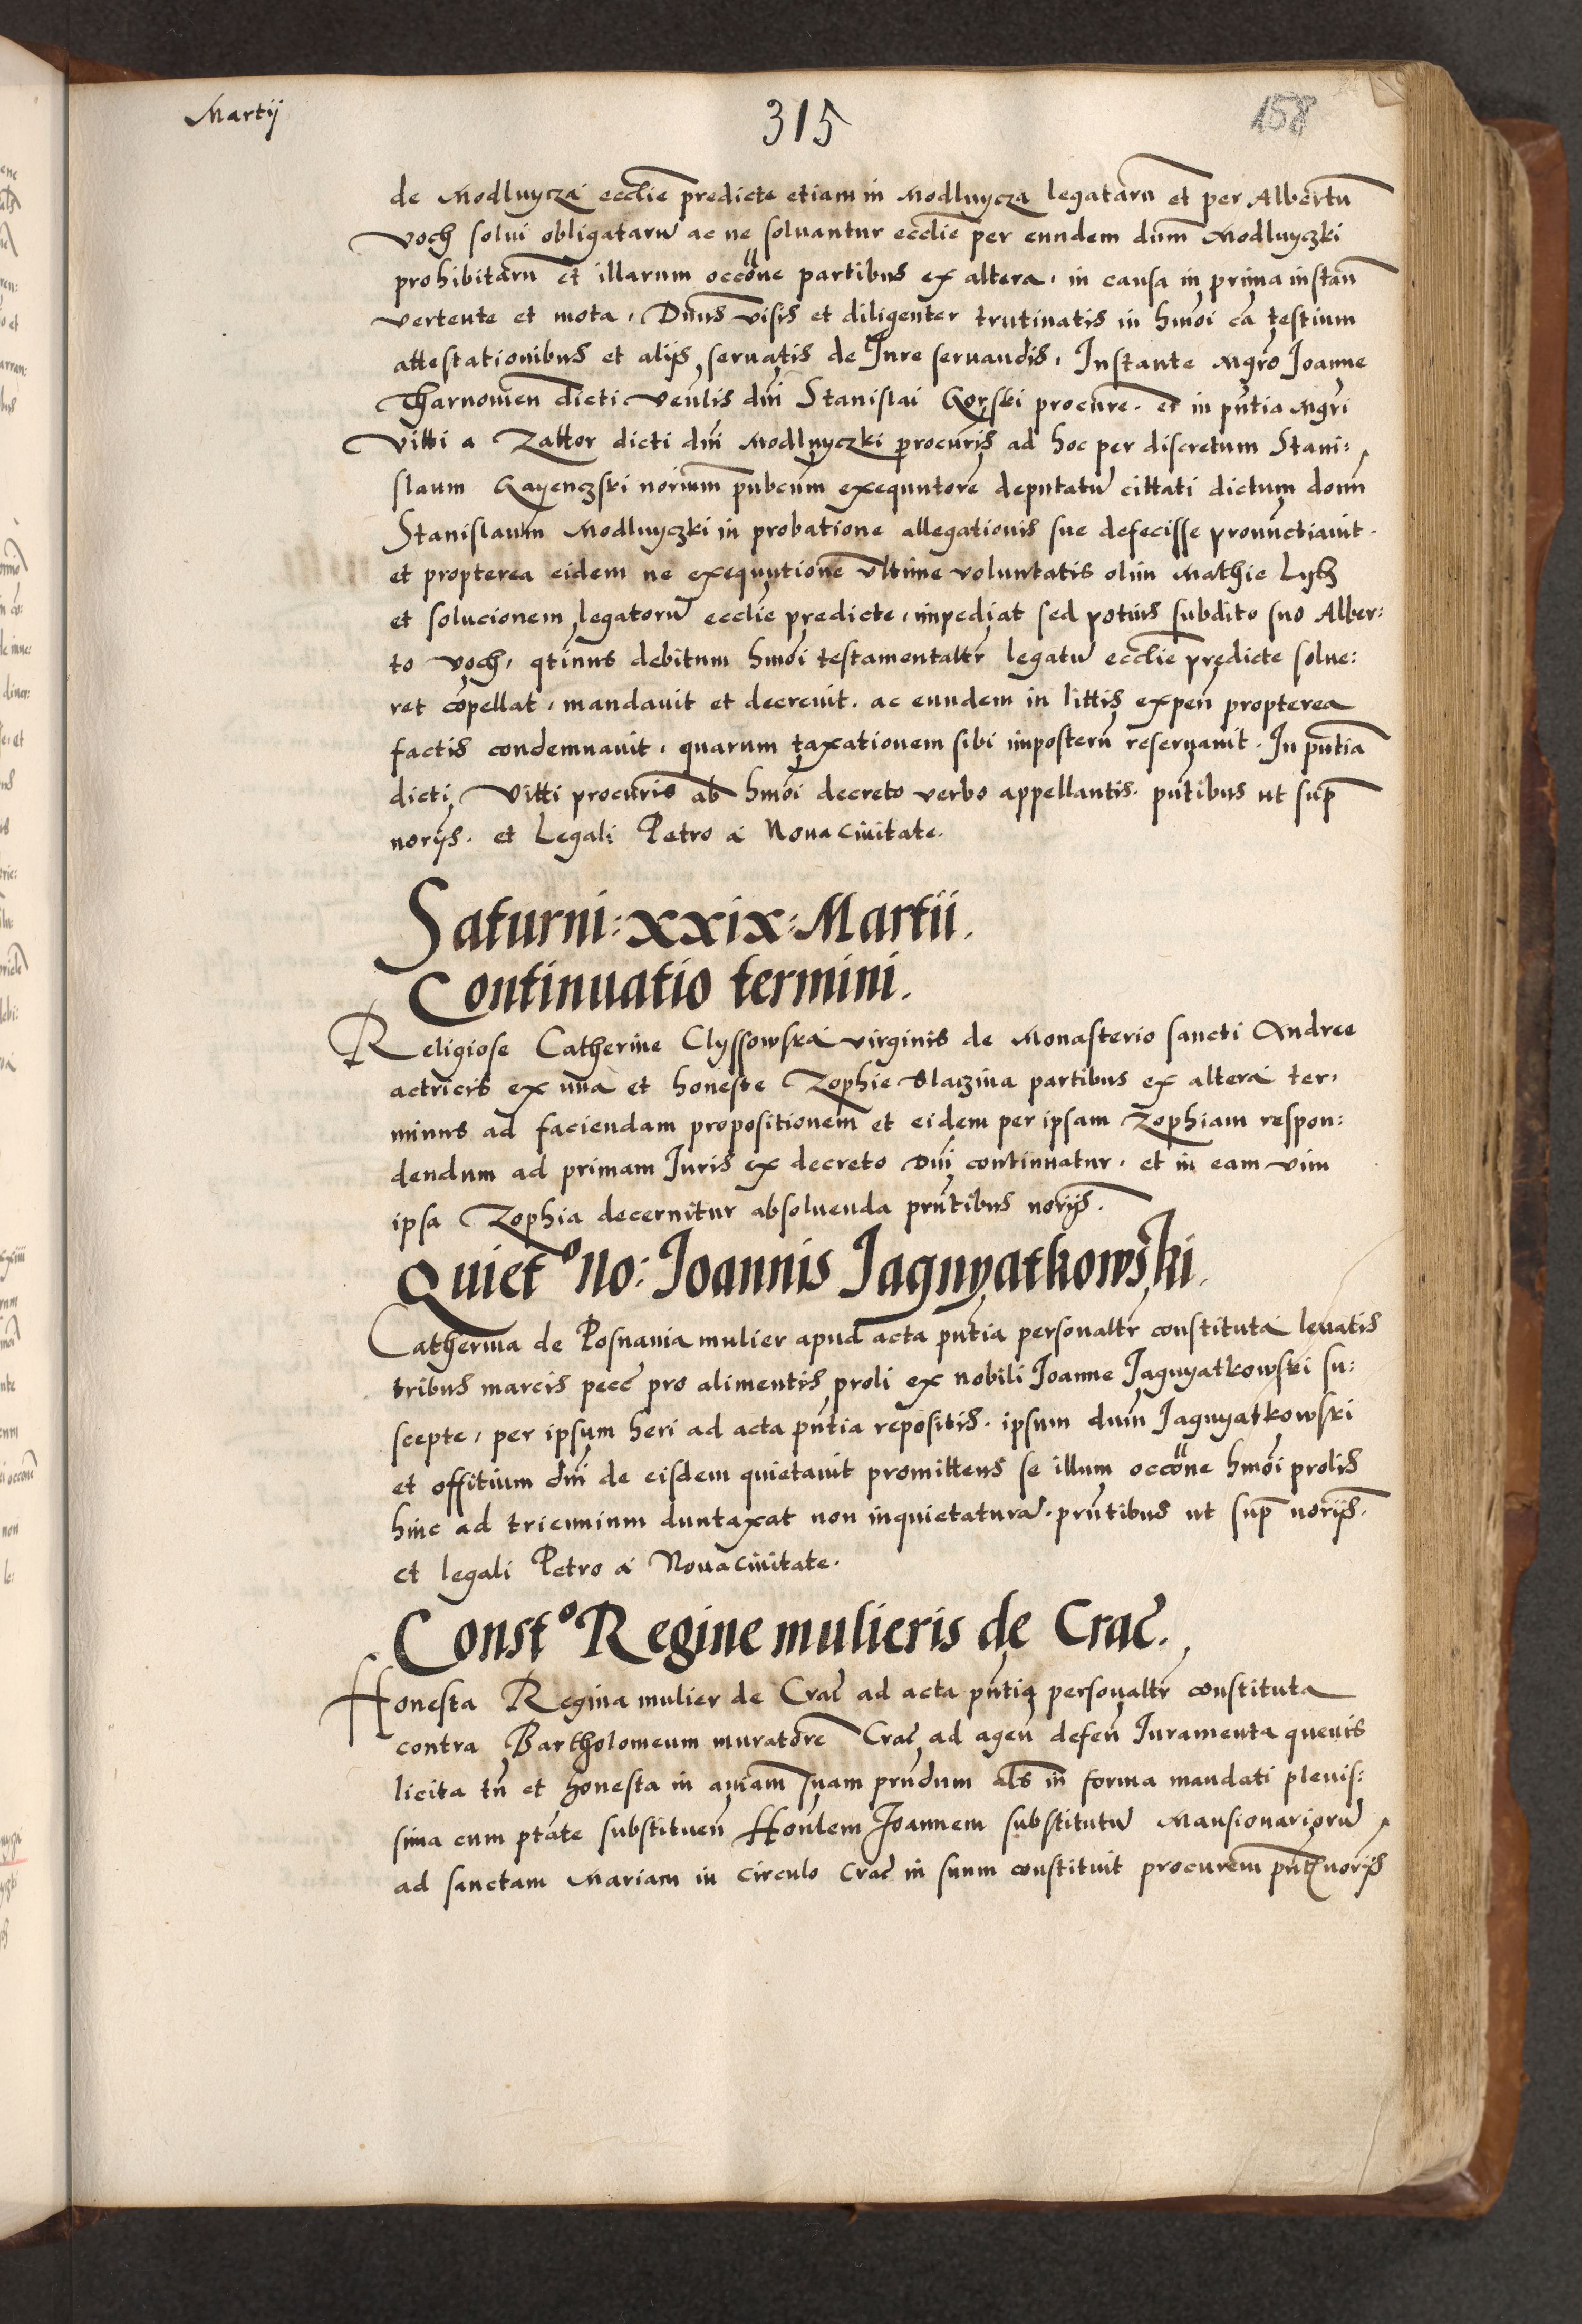 Martij
315
158
de Modlnycza ecclie predicte etiam in Modlnycza legataru et per Albertu
Voch solui obligataru ac ne soluantur ecclie per eundem dum Modlnyczki
prohibitaru et illarum occone partibus ex altera, in causa in prima instan
vertente et mota, Dnus visis et diligenter trutinatis in hmoi ca testium
attestationibus et alijs seruatis de Jure seruandis, Instante Mgro Joanne
Tharnowien dicti venlis dni Stanislai Gorski procure. et in pntia Mgri
Vitti a Zattor dicti dni Modlnyczki procuris ad hoc per discretum Stani:
slaum Gayenczski norium pubcum exequutore deputatu cittati dictum domn
Stanislaum Modlnyczki in probatione allegationis sue defecisse pronunctiauit.
et propterea eidem ne exequutione vltime voluntatis olim Mathie
et solucionem legatoru ecclie predicte, impediat sed potius subdito suo Alber:
to Voch, qtinus debitum hmoi testamentaltr legatu ecclie predicte solue:
ret copellat, mandauit et decreuit. ac eundem in littis expen propterea
factis condemnauit, quarum taxationem sibi imposteru reseruauit. In pntia
dicti Vitti procuris ab hmoi decreto verbo appellantis. pntibus ut sup
norijs. et Legali Petro a Noua ciuitate.
Saturni: xxix: Martii.
Continuatio termini.
Religiose Catherine Clyssowska virginis de Monasterio sancti Andree
actricis ex vna et honeste Zophie Slaczina partibus ex altera ter,
minus ad faciendam propositionem et eidem per ipsam Zophiam respon:
dendum ad primam Iuris ex decreto Dni continuatur. et in eam vim
ipsa Zophia decernitur absoluenda prntibus norijs.
Quiet° no: Joannis Jagnyatkowski.
Catherina de Posnania mulier apud acta pntia personaltr constituta leuatis
tribus marcis pecc pro alimentis proli ex nobili Joanne Jagnyatkowski su:
scepte, per ipsum heri ad acta pntia repositis. ipsum dnm Jagnyatkowski
et offitium dni de eisdem quietauit promittens se illum occone hmoi prolis
hinc ad triennium duntaxat non inquietatura. prntibus ut sup norijs.
et legali Petro a Noua ciuitate.
Const° Regine mulieris de Crac.
Honesta Regina mulier de Crac ad acta pntia personaltr constituta
contra Bartholomeum muratore Crac ad agen defen Iuramenta queuis
licita tn et honesta in aniam suam prndum als in forma mandati plenis:
sima cum ptate substituen Honlem Joannem substitutu Mansionarioru
ad sanctam Mariam in circulo Crac in suum constituit procurem pnt norijs